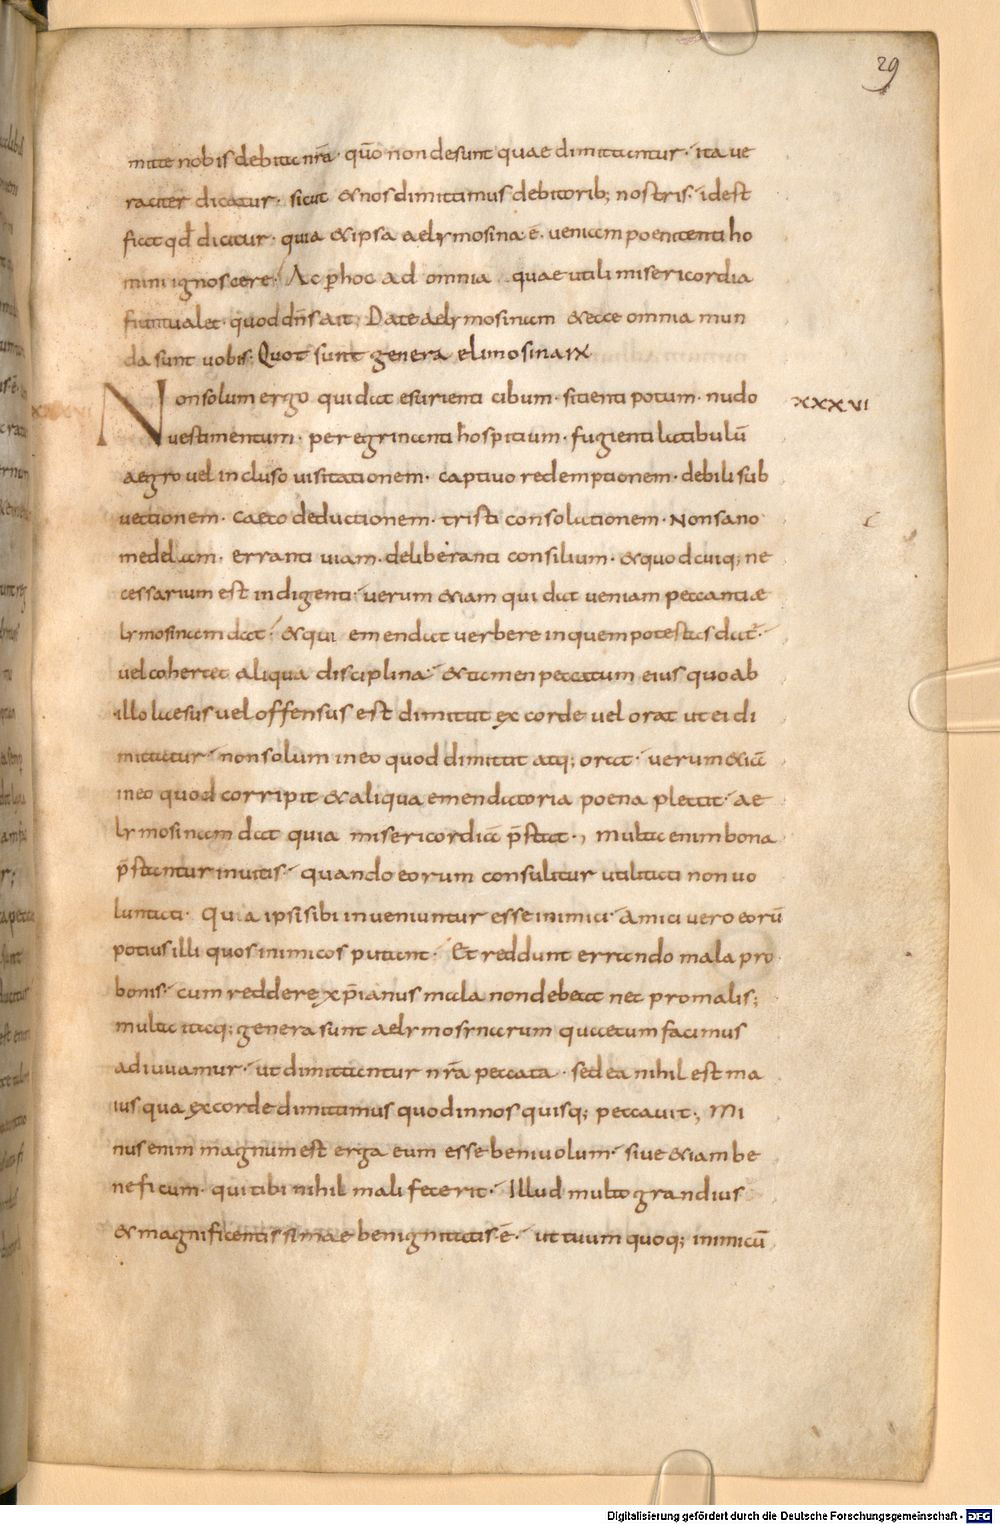 29
mitte nobis debita nr̄a· qūo non desunt quae dimittuntur· ita ue
raciter dicatur· sicut & nos dimittimus debitorib; nostris· idest
fiat qd̄ dicitur· quia & ipsa aelymosina ē· ueniam poenitenti ho
mini ignoscere· Ac p̄hoc ad omnia quae utili misericordia
fiunt ualet· quod dn̄s ait; Date aelymosinam & ecce omnia mun
da sunt uobis; Quot sunt genera elimosina IX
Non solum ergo qui dat esurienti cibum· sitienti potum· nudo
XXXVI
uestimentum· peregrinanti hospitium· fugienti latibulū
aegro uel incluso uisitationem· captiuo redemptionem· debili sub
uectionem· caeco deductionem· tristi consolationem· Non sano
medelam· erranti uiam· deliberanti consilium· & quod cuiq; ne
cessarium est indigenti· uerum & iam qui dat ueniam peccanti æ
lymosinam dat· & qui emendat uerbere in quem potestas dat̄·
uel cohercet aliqua disciplina· & tamen peccatum eius quo ab
illo laesus uel offensus est dimittit ex corde uel orat ut ei di
mittatur· non solum in eo quod dimittit atq; orat· uerum & iā
in eo quod corripit & aliqua emendatoria poena plectit· ae
lymosinam dat quia misericordiā p̄stat·, Multa enim bona
p̄stantur inuitis· quando eorum consulitur utilitati non uo
luntati· Quia ipsi sibi inueniuntur esse inimici· Amici uero eorū
potius illi quos inimicos putant· Et reddunt errando mala pro
bonis· cum reddere xp̄ianus mala non debeat nec pro malis;
multa itaq; genera sunt aelymosynarum quae cum facimus
adiuuamur· ut dimittantur nr̄a peccata· sed ea nihil est ma
ius qua ex corde dimittimus quod in nos quisq; peccauit·, Mi
nus enim magnum est erga eum esse beniuolum· siue & iam be
neficum· qui tibi nihil mali fecerit· Illud multo grandius
& magnificentissimae benignitatis ē· ut tuum quoq; inimicū
Digitalisierung gefördert durch die Deutsche Forschungsgemeinschaft - DFG